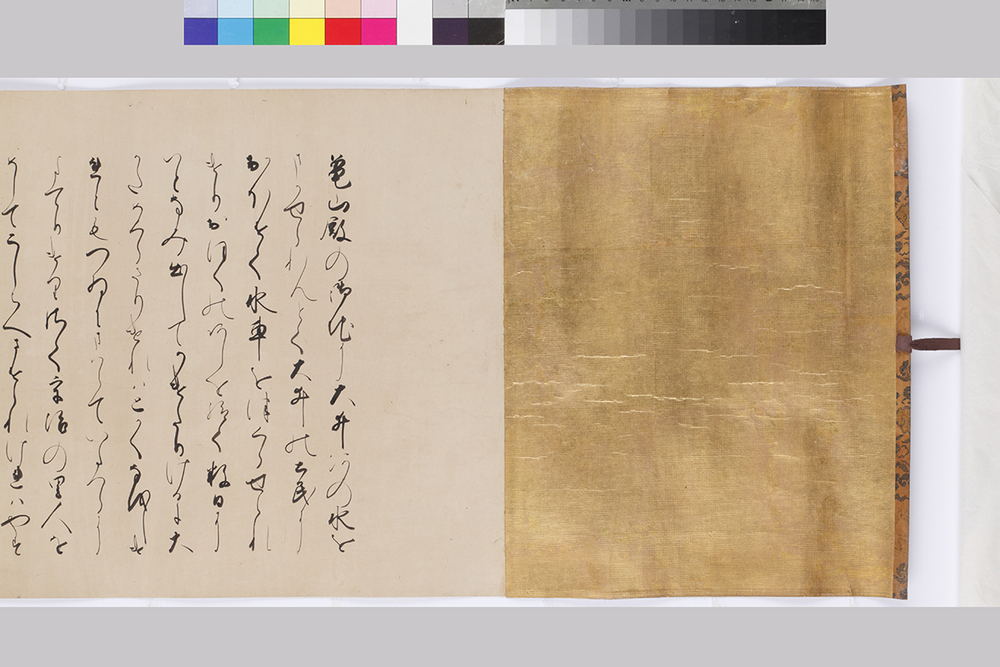 亀山殿の御池に大井河の水を
まかせられんとて大井の土民に
おほせて水車をつくらせられ
けりおほくのあしを給て数日に
いとなみ出してかけたりけるに大
かためくらさりけれはとかくなほしけ
れともつゐにまはらていたつらに
たてりけりさて宇治の里人を
めしてこしらへさせられけれはやす